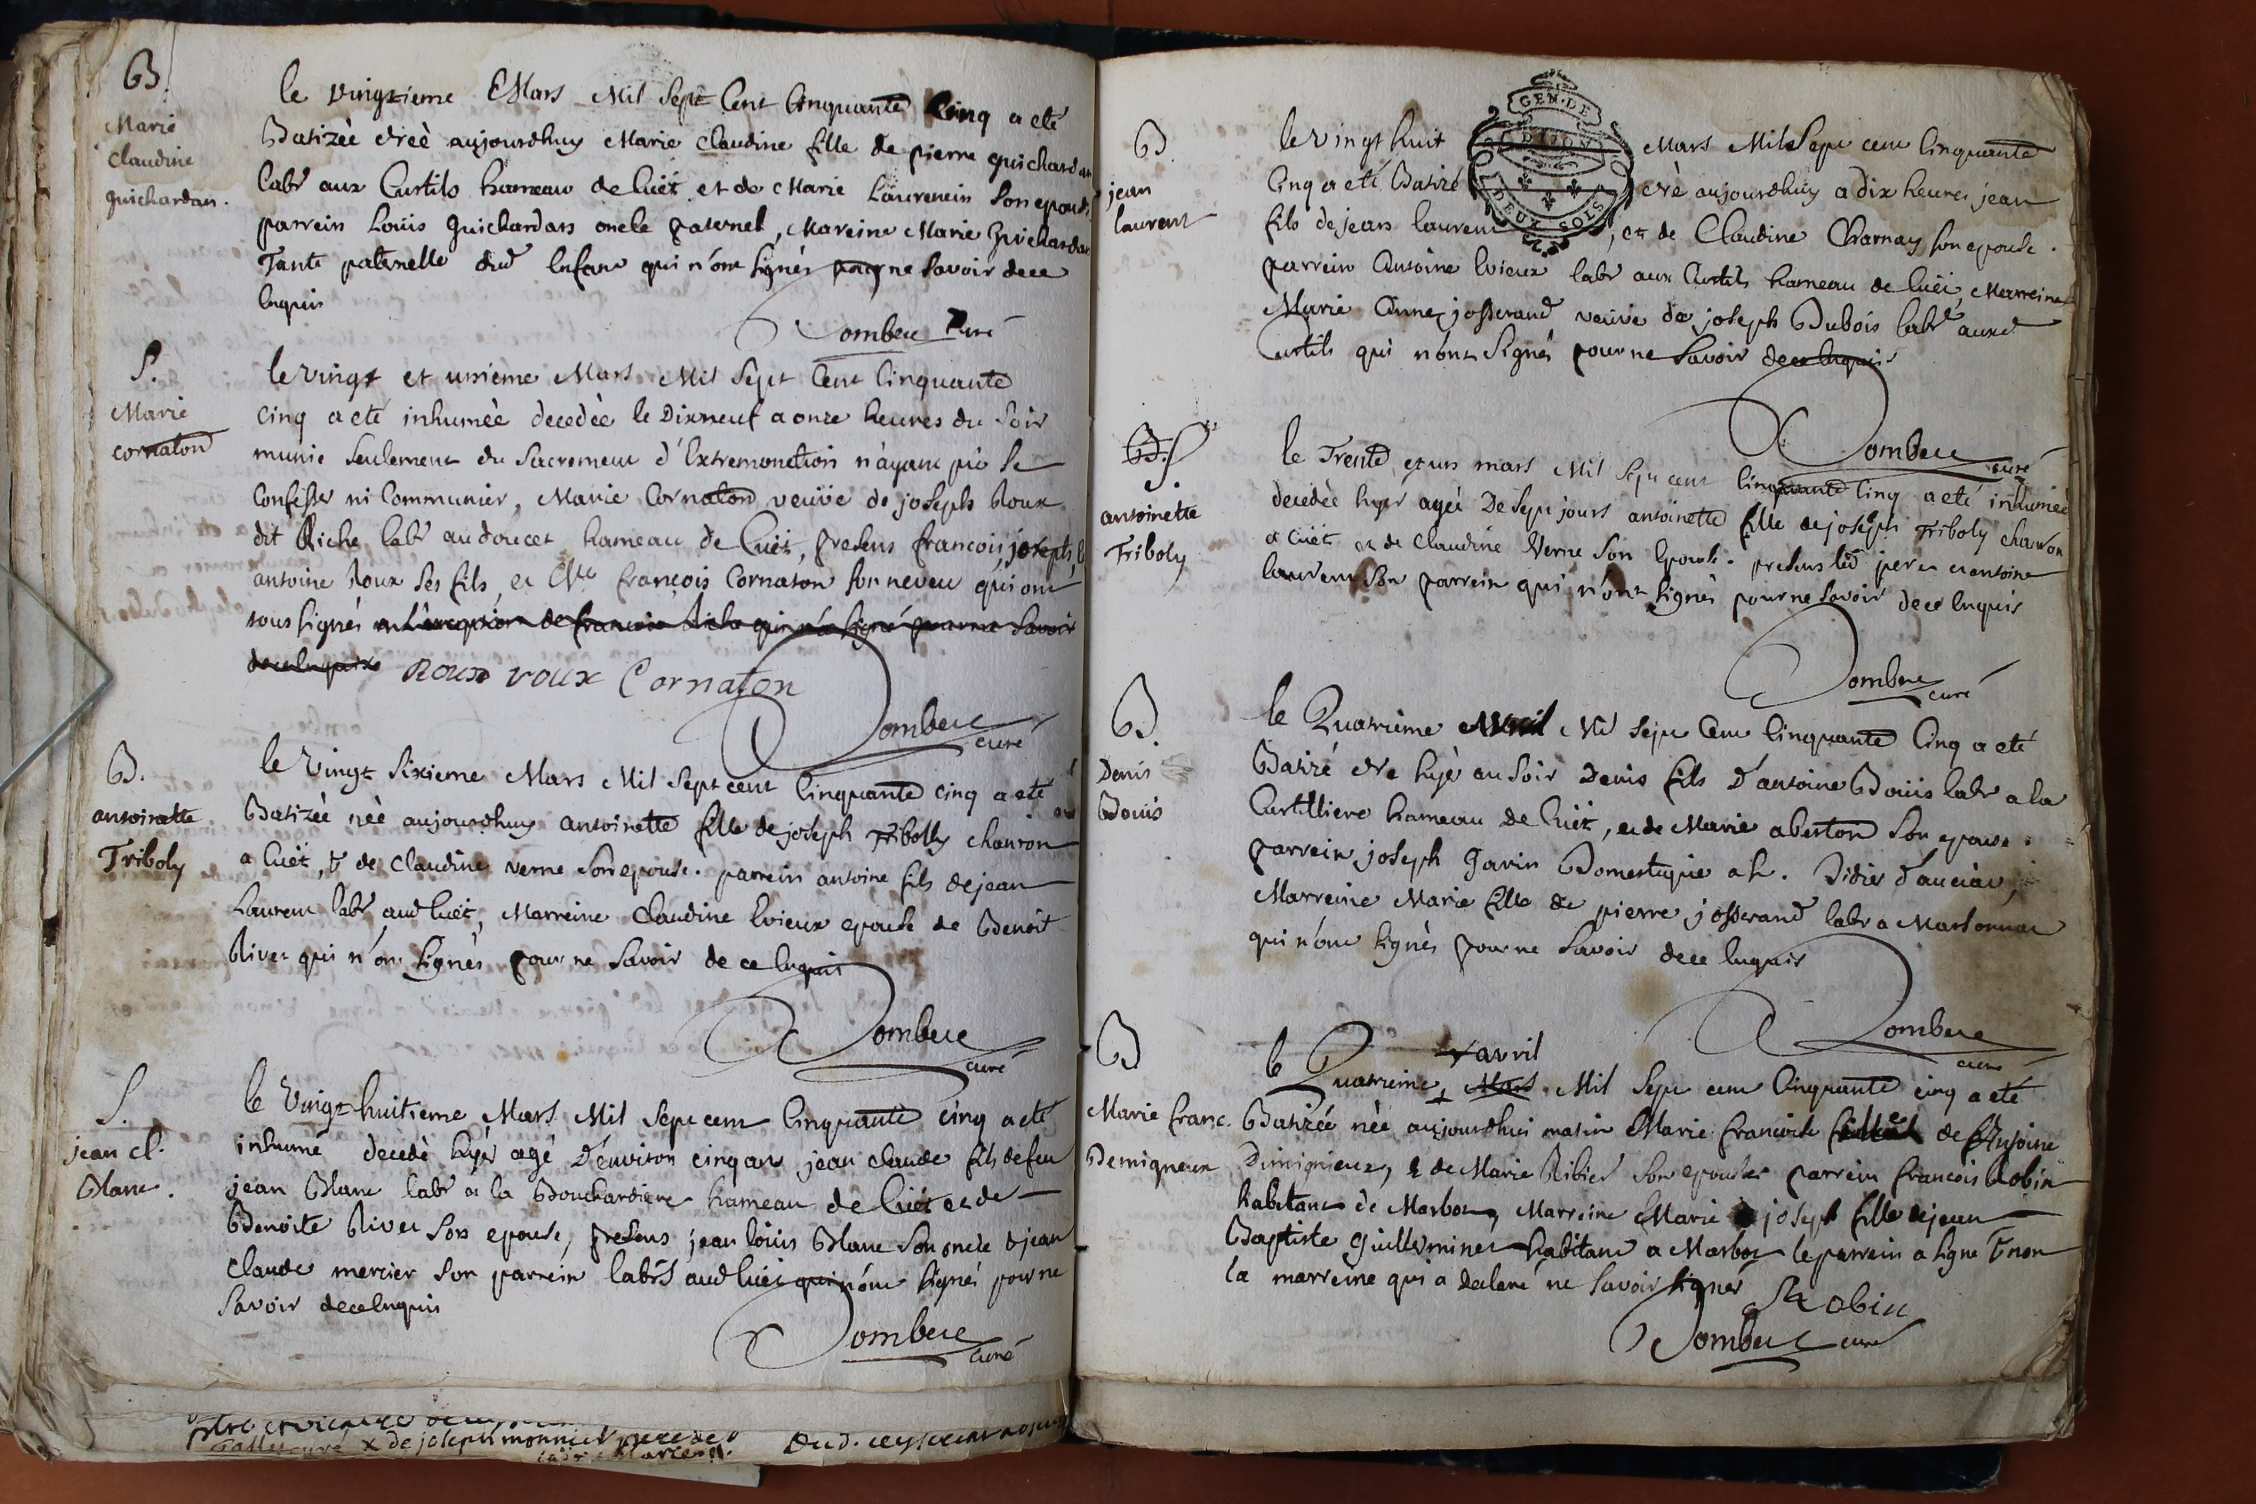 B.
Marie
Claudine
guichardan.
le vingtieme Mars Mil Sept Cent Cinquante Cinq a eté
Batizèè nèè aujourdhuy Marie Claudine fille de pierre guichardan
labr aux Curtils hameau de Cuët et de Marie Laurencin son epouse
parrein Loüis guichardan oncle paternel, Mareine Marie guichardan
Tante paternelle dud Enfant qui n'ont signès pour ne savoir de ce
Enquis
Dombey Curé
S.
Marie
cornaton
le vingt et unième Mars Mil Sept Cent Cinquante
cinq a eté inhumèè decedèè le Dixneuf a onze heures du soir
munie seulement du Sacrement d'Extremonction n'ayant pü se
Confesser ni Communier, Marie Cornaton veuve de joseph Roux
dit Riche labr au doucet hameau de Cuët, presens francois, joseph, &
antoine Roux ses fils, et Mre françois Cornaton son neveu qui ont
sous signés a l'exception de francois Riche qui n'a signé pour ne savoir
de ce Enquis Roux roux Cornaton
Dombey
curé
B.
antoinette
Triboly
le vingt Sixieme Mars Mil Sept cent Cinquante cinq a eté
Batizèè nèè aujourdhuy antoinette fille de joseph Tribolly charron
a Cuët, & de Claudine verne son epouse. parrein antoine fils de jean
Laurent labr aud Cuët, Marreine Claudine Evieux epouse de Benoît
River qui n'ont signès pour ne savoir de ce Enquis
Dombey
curé
S.
jean cl.
Blanc.
le vingt huitieme Mars Mil Sept cent Cinquante cinq a eté
inhumé decedè hyèr agé D'environ cinq ans jean claude fils de feu
jean Blanc labr a la Bouchardiere hameau de Cuët et de
Benoite River son epouse, presens jean loüis Blanc son oncle & jean
Claude mercier son parrein labrs aud Cuët qui n'ont signès pour ne
savoir de ce Enquis
Dombey
curé
B.
jean
laurent
GEN. DE
DIJON
DEUX SOLS
le vingt huit Mars Mil Sept cent Cinquante
Cinq a eté Batizé né aujourdhuy a dix heures jean
fils de jean laurent, et de Claudine Charnay son epouse.
parrein Antoine Evieux labr aux Curtils hameau de Cuët, Marreine
Marie Anne josserand veuve de joseph Dubois labr auxd
Curtils qui n'ont Signés pour ne savoir de ce Enquis
Dombey
curé
B. S.
antoinette
Triboly
le Trente et un mars Mil Sept cent Cinquante Cinq a eté inhumèè
decedèe hyer agèe De Sept jours antoinette fille de joseph Triboly charron
a Cuët et de Claudine Verne son Epouse. presens led pere et antoine
laurent son parrein qui n'ont signès pour ne savoir de ce Enquis
Dombey
curé
B.
Denis
Boüis
le Quatrième Avril Mil Sept Cent Cinquante Cinq a eté
Batizé né hyèr au soir Denis fils D'antoine Boüis labr a la
Curtilliere hameau de Cuët, et de Marie aberton son epouse.
parrein joseph gavin Domestique a
Marreine Marie fille de pierre josserand labr a Marsonnas
qui n'ont signès pour ne savoir de ce Enquis
Dombey
curé
B
Marie franc.
Demigneux
avril
le Quatrieme Mars Mil Sept cent Cinquante cinq a eté
Batizée nèè aujourdhui matin Marie francoise fille de Antoine
Dimignieux, & de Marie Ribier son epouse parrein francois Robin
habitant de Marboz, Marreine Marie joseph fille de jean
Baptiste guillerminet habitant a Marboz le parrein a signé & non
la marreine qui a declaré ne savoir signer
Robin
Dombey curé